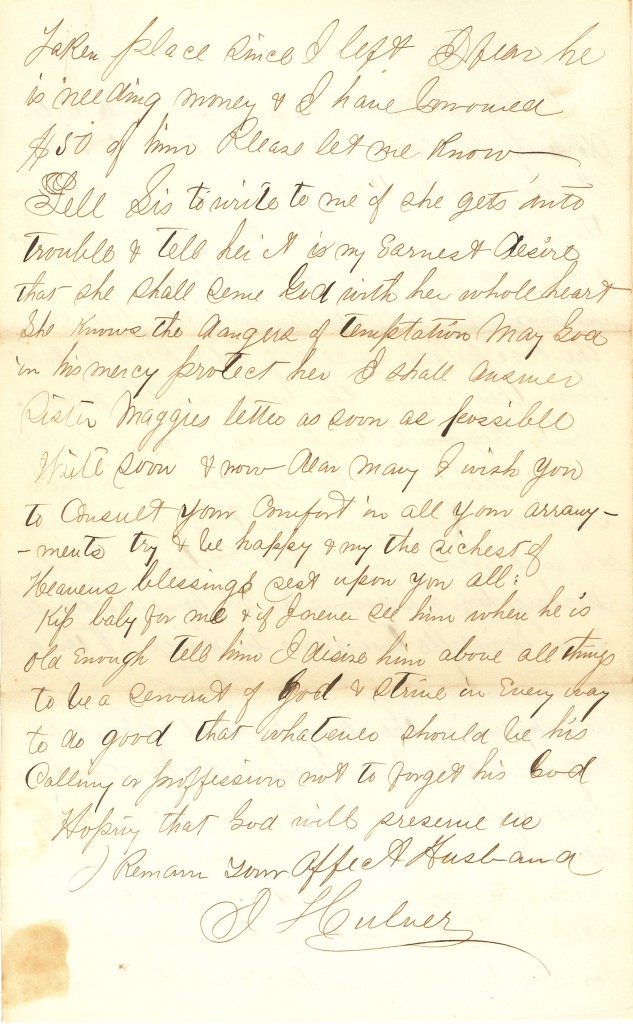 Taken place since I left I fear he
is needing money & I have borrowed
$50 of him Please let me know
Tell Sis to write to me if she gets into
trouble & tell her it is my Earnest desire
that she shall serve God with her whole heart
She knows the dangers of temptation May God
in his mercy protect her I shall answer
Sister Maggies letter as soon as possible
Write soon & now dear Mary I wish you
to consult your Comfort in all your arrang-
-ments try & be happy & my the richest of
Heavens blessings rest upon you all:
Kiss baby for me & if I never see him when he is
old Enough tell him I disire him above all things
to be a servant of God & strive in Every way
to do good that whatever should be his
Calling or proffission not to forget his God
Hoping that God will preserve us
I Remain Your Affect Husband
Culver